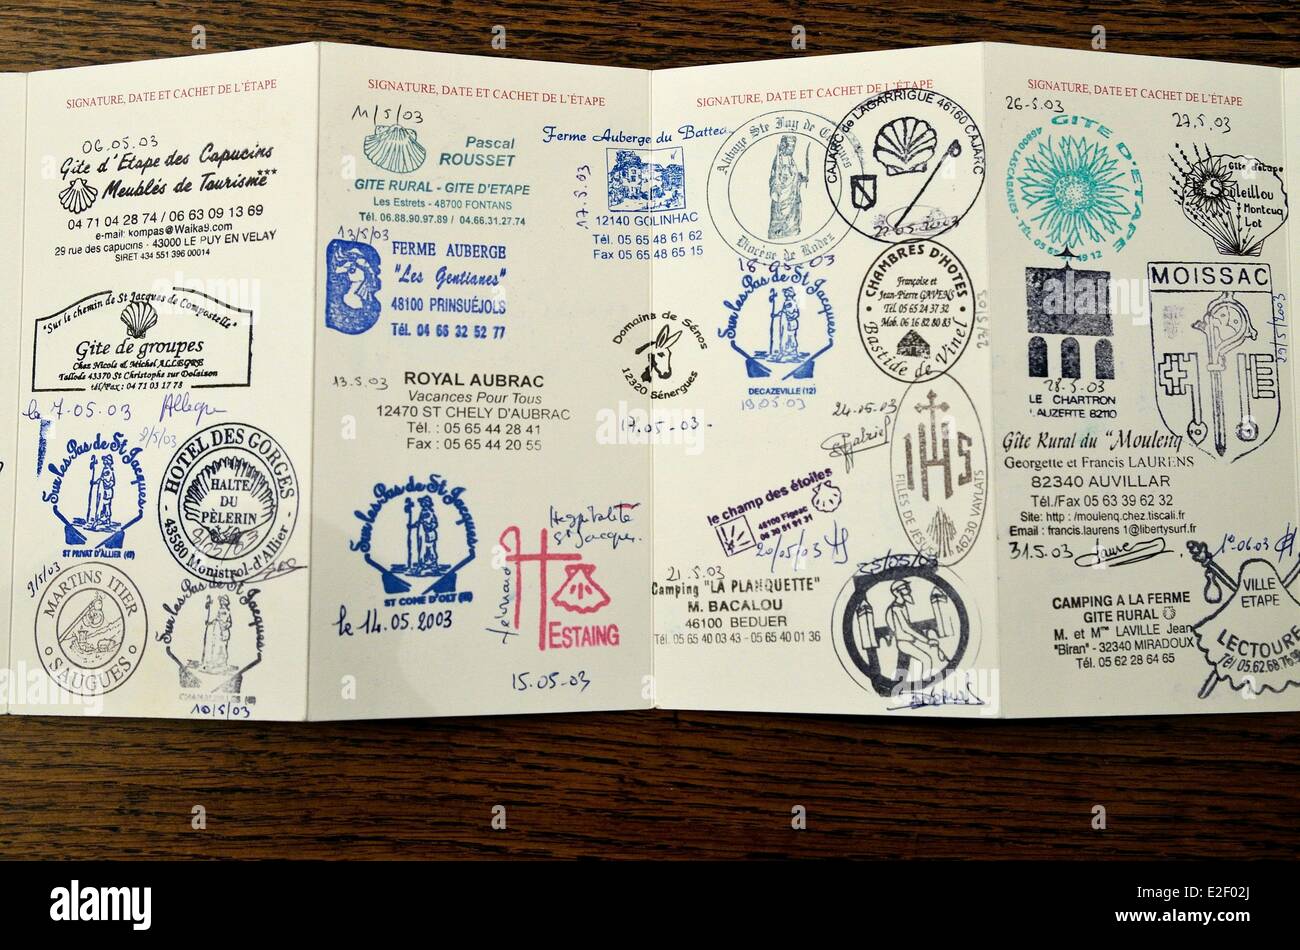 SIGNATURE, DATE ET CACHET DE L'ÉTAPE
06.05.03
Gîte d'Etape des Capucins
Meublés de Tourisme***
04 71 04 28 74 / 06 63 09 13 69
e-mail: kompas@Waika9.com
29 rue des capucins - 43000 LE PUY EN VELAY
SIRET 434 551 396 00014
"Sur le chemin de St Jacques de Compostelle"
Gîte de groupes
Chez Nicole & Michel ALLEGRE
Tallode 43370 St Christophe sur Dolaison
tél/Fax: 04 71 03 17 78
le 7.05.03 Allegre
8/5/03
Sur les Pas de St Jacques
ST PRIVAT D'ALLIER (43)
HOTEL DES GORGES
HALTE
DU
PÈLERIN
- 43580 Monistrol-d'Allier -
9/5/03
MARTINS ITIER
SAUGUES
Sur les Pas de St Jacques
10/5/03
SIGNATURE, DATE ET CACHET DE L'ÉTAPE
11/5/03
Pascal
ROUSSET
GITE RURAL - GITE D'ETAPE
Les Estrets - 48700 FONTANS
Tél. 06.88.90.97.89 / 04.66.31.27.74
13/5/03
FERME AUBERGE
"Les Gentianes"
48100 PRINSUÉJOLS
Tél. 04 66 32 52 77
13.5.03
ROYAL AUBRAC
Vacances Pour Tous
12470 ST CHELY D'AUBRAC
Tél. : 05 65 44 28 41
Fax : 05 65 44 20 55
Sur les Pas de St Jacques
ST COME D'OLT (12)
le 14.05.2003
Hospitalité
St Jacques
ESTAING
15.05.03
Ferme Auberge du Battedou
17.5.03
12140 GOLINHAC
Tél. 05 65 48 61 62
Fax 05 65 48 65 15
Domaine de Sénos
12320 Sénergues
17.05.03
SIGNATURE, DATE ET CACHET DE L'ÉTAPE
Abbaye Ste Foy de Conques
Diocèse de Rodez
18.05.03
Sur les Pas de St Jacques
DECAZEVILLE (12)
19.05.03
CAJARC de LAGARRIGUE 46160 CAJARC
22.05.2003
CHAMBRES D'HOTES
Françoise et
Jean-Pierre GAVENS
05 65 24 37 32
Mob. 06 16 82 80 83
Bastide de Vinel
23/5/03
24.05.03
Gabriel
IHS
FILLES DE JESUS
46230 VAYLATS
le champ des étoiles
46100 Figeac
20/05/03
21.5.03
Camping "LA PLANQUETTE"
M. BACALOU
46100 BEDUER
Tél. 05 65 40 03 43 - 05 65 40 01 36
25/05/03
SIGNATURE, DATE ET CACHET DE L'ÉTAPE
26-5.03
GITE D'ETAPE
27.5.03
Gîte d'étape
Souleillou
Montcuq
Lot
28.5.03
LE CHARTRON
LAUZERTE 82110
MOISSAC
29/5/2003
Gîte Rural du "Moulenq
Georgette et Francis LAURENS
82340 AUVILLAR
Tél./Fax 05 63 39 62 32
Site: http :/moulenq.chez.tiscali.fr
Email : francis.laurens 1@libertysurf.fr
31.5.03
CAMPING A LA FERME
GITE RURAL
M. et Mme LAVILLE Jean
"Biran" - 32340 MIRADOUX
Tél. 05 62 28 64 65
1°.06.03
VILLE
ETAPE
LECTOURE
Tél 05.62.68.76.98
alamy
Image ID: E2F02J
www.alamy.com